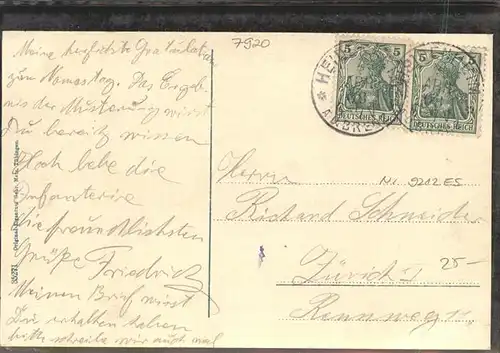 Meine herzlichste Gratulation
zum Namestag. Das Ergeb-
nis der Musterung wirst
Du bereits wissen
Hoch lebe die
Infanterie
Die freundlichsten
Grüße Friedrich
Meinen Brief wirst
Du erhalten haben
bitte schreibe mir auch mal
7920
5 5
DEUTSCHES REICH
5
DEUTSCHES REICH
Herrn
NI 9202 ES
Richard Schneider
Zürich I
25-
Rennweg
35271